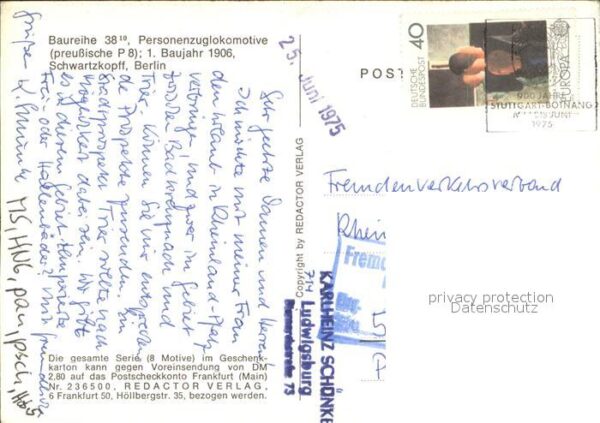 Baureihe 38¹⁰, Personenzuglokomotive
(preußische P 8); 1. Baujahr 1906,
Schwartzkopff, Berlin
25. Juni 1975
POST
DEUTSCHE BUNDESPOST
40
EUROPA
900 JAHRE
STUTTGART-BOTNANG
JUNI
1975
Sehr geehrte Damen und Herren!
Ich möchte mit meiner Frau
den Urlaub in Rheinland-Pfalz
verbringen, und zwar im Gebiet
Bad Kreuznach und
Trier. Können Sie mir entsprechen-
de Prospekte zusenden. Ein
Stadtprospekt Trier sollte nach
Möglichkeit dabei sein. Wo gibt
es in diesem Gebiet temperierte
Frei- oder Hallenbäder? Mit freundlichen
Grüßen K.
Copyright by REDACTOR VERLAG
Fremdenverkehrsverband
Rhein
Fremd
KARLHEINZ SCHÖNKE
714 Ludwigsburg
73
privacy protection
Datenschutz
Die gesamte Serie (8 Motive) im Geschenk-
karton kann gegen Voreinsendung von DM
2,80 auf das Postscheckkonto Frankfurt (Main)
Nr. 236500, REDACTOR VERLAG,
6 Frankfurt 50, Höllbergstr. 35, bezogen werden.